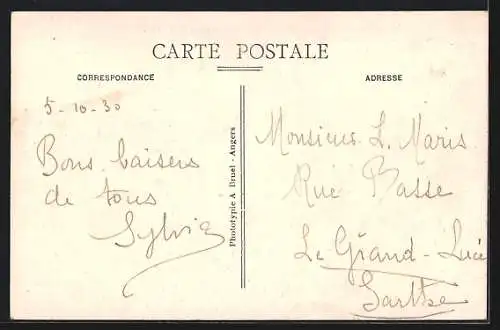 CARTE POSTALE
CORRESPONDANCE
ADRESSE
5-10-30
Bons baisers
de tous
Sylvie
Phototypie A. Bruel - Angers
Monsieur L. Maris
Rue Basse
Le Grand-Lucé
Sarthe